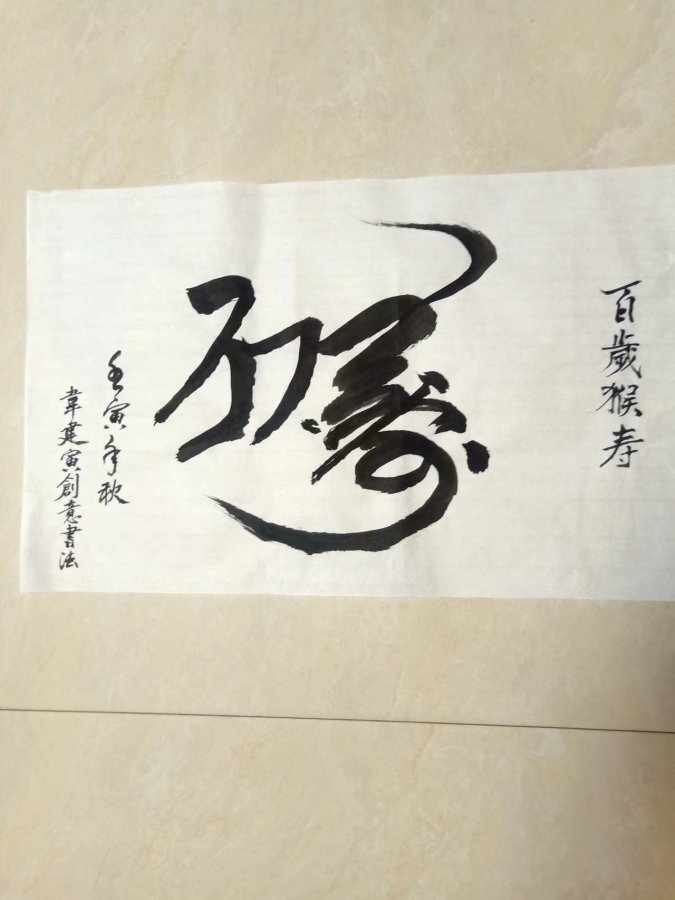 百歲猴寿
壬寅年秋
韋建寅創意書法